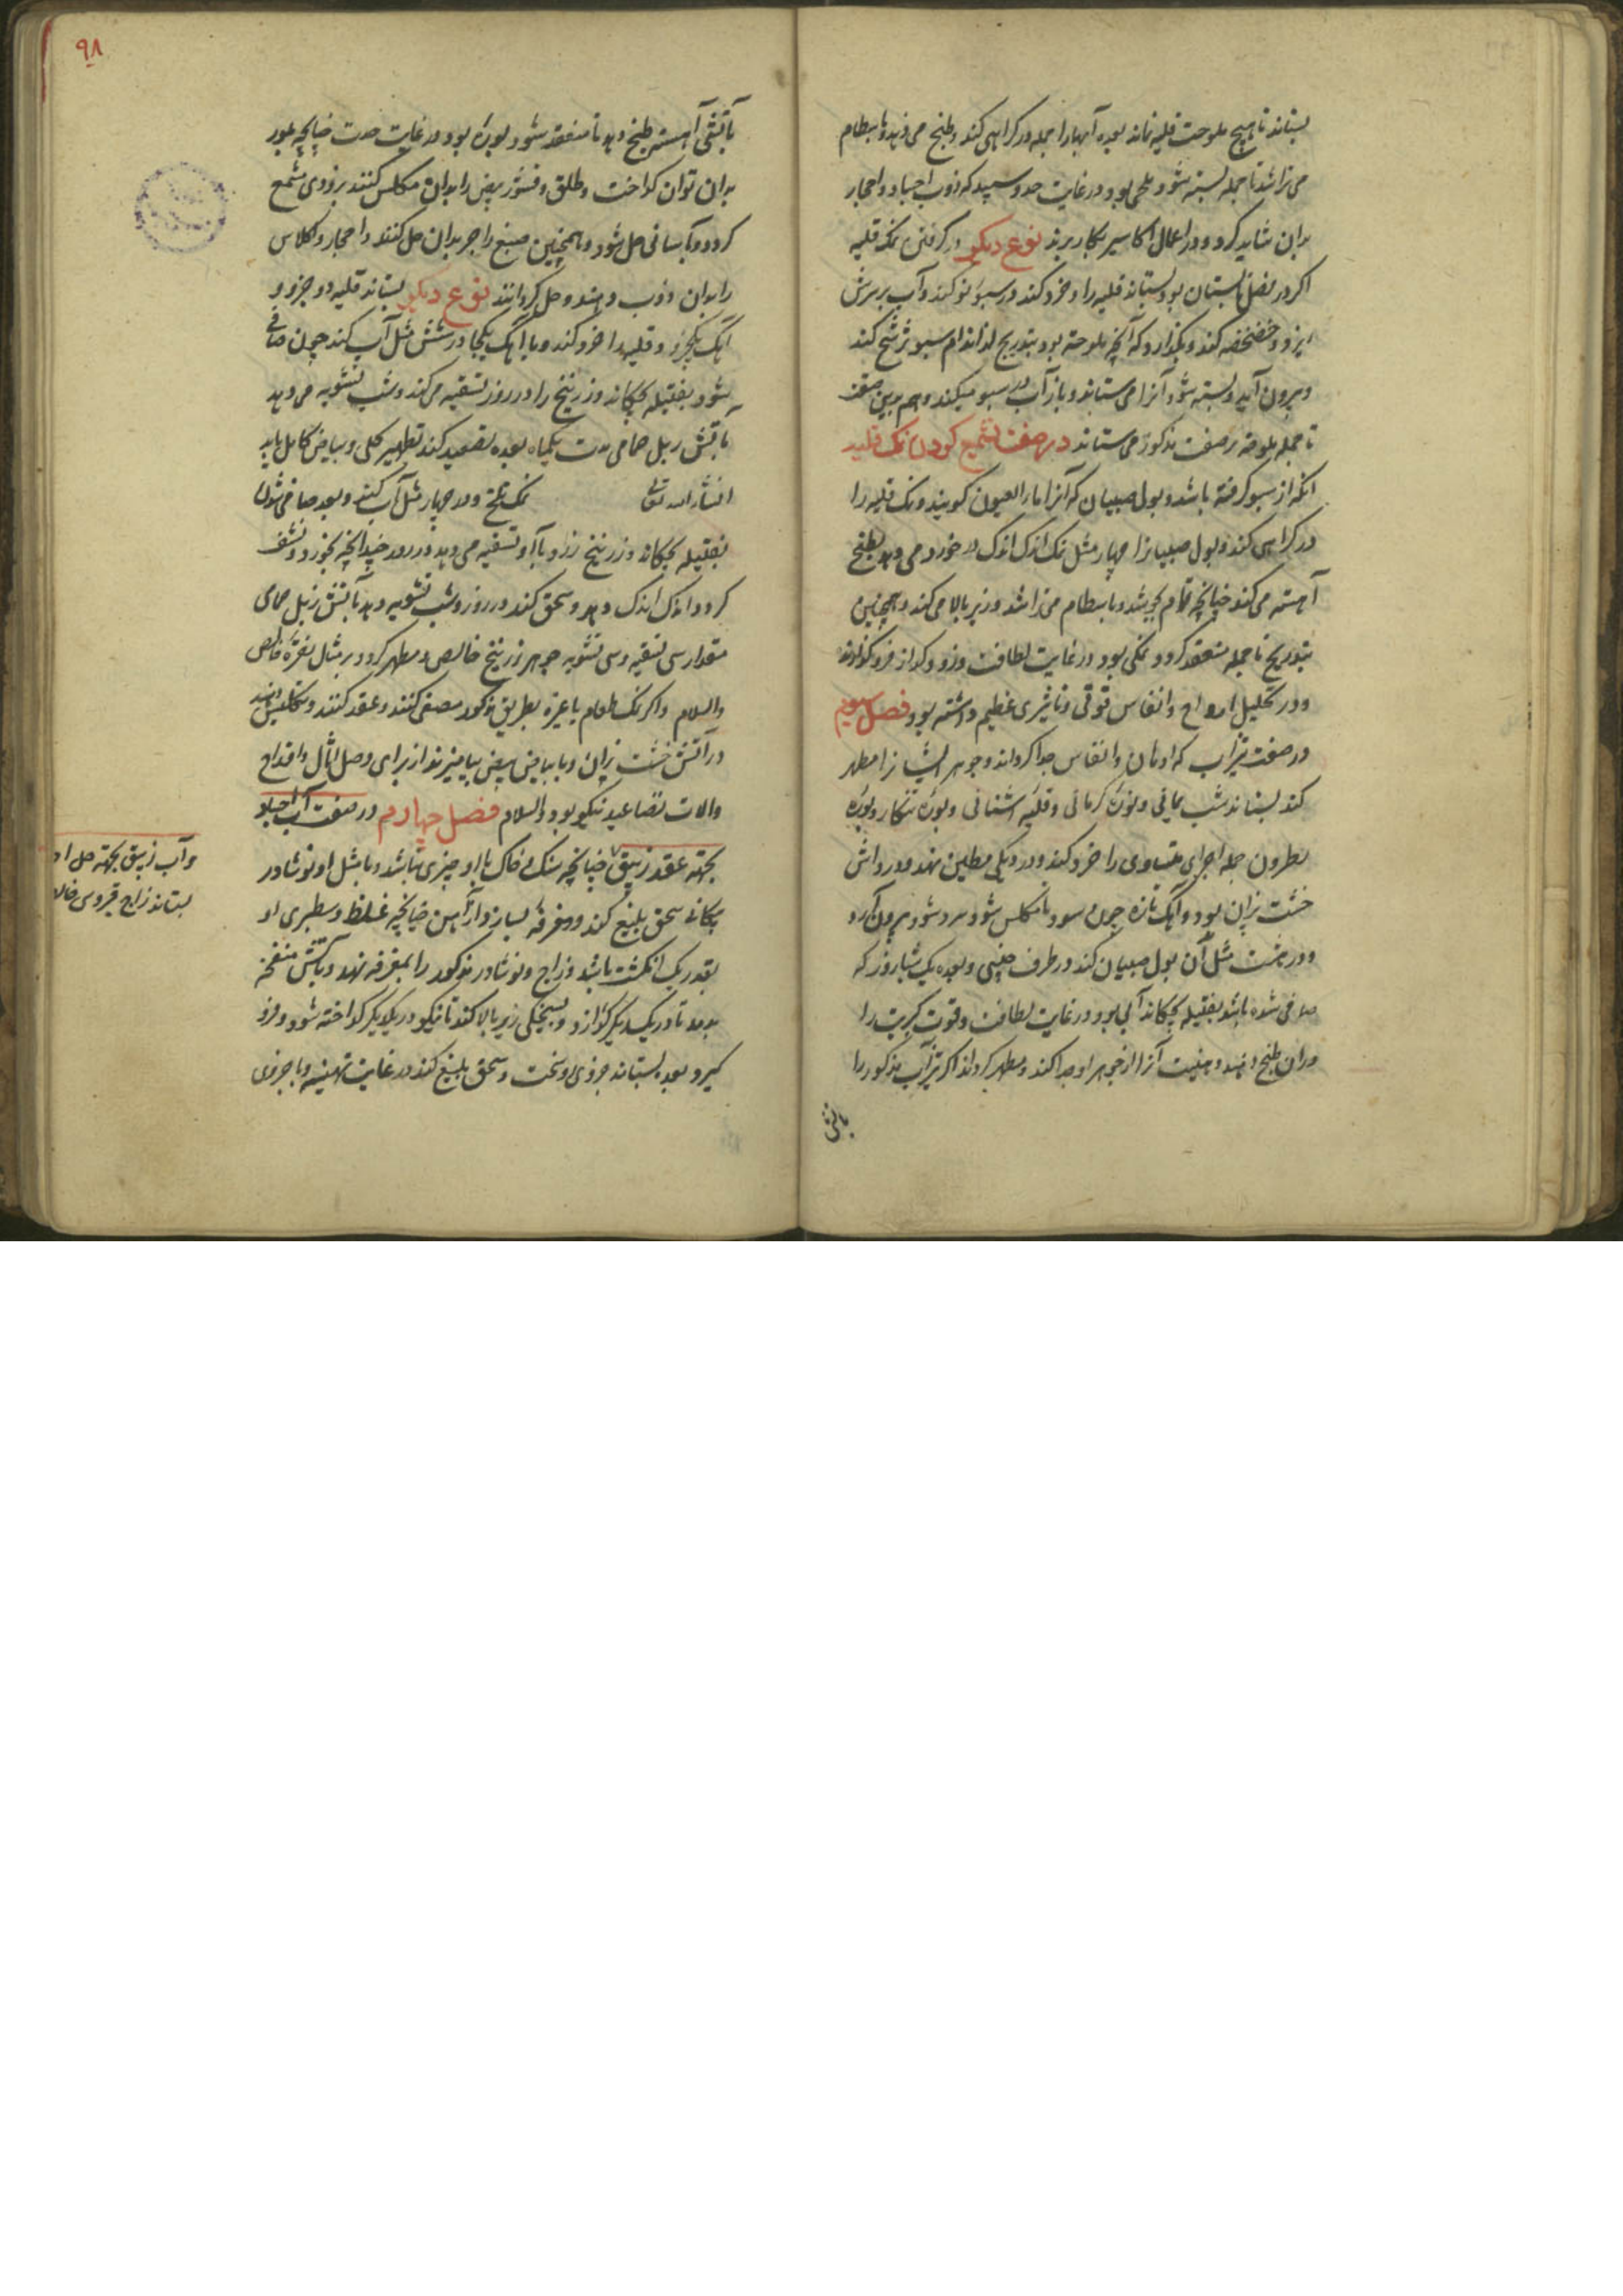 بستاند تا هیچ ملوحت قلیه نماند بعده آبها را جمله در کراهی کند و طبخ می دهد و با سطام
می تراشد تا جمله بسته شود ملحی بود در غایت حد و سپید که ذوب اجساد و احجار
بدان شاید کرد و در اعمال اکاسیر بکار برند نوع دیگر در گرفتن نمک قلیه
اگر در فصل تابستان بود بستاند قلیه را و خرد کند و در سبوی نو کند و آب بر سرش
ریزد و خضخضه کند و بگذارد که آنچه ملوحة بود بتدریج از اندام سبو ترشح کند
و بیرون آید و بسته شود آنرا می ستاند و باز آب در سبو میکند و هم بدین صفت
تا جمله ملوحة بر صفت مذکور می ستاند در صفت تشمیع کردن نمک قلیه
آنکه از سبو گرفته باشد و بول صبیان که آنرا ماء العیون گویند و نمک قلیه را
در کراهی کند و بول صبیانرا چهار مثل نمک اندک اندک در خورد می دهد و بطبخ
آهسته می کند چنانچه تمام بجوشد و با سطام می تراشد و زیر بالا می کند و همچنین
بتدریج تا جمله منعقد گردد نمکی بود در غایت لطافت و زود گداز فرو گذارند
و در تحلیل ارواح و انفاس قوتی و تاثیری عظیم داشته بود فصل سیوم
در صفت تیزاب که ادهان و انفاس جدا گرداند و جوهر ایشانرا مطهر
کند بستاند شب یمانی و بوره کرمانی و قلیه اشنانی و بوره تنکار و بوره
نطرون جمله اجزای متساوی را خرد کند و در دیگی مطین نهد و در داش
خشت پزان بود و آهک تازه چون بسود تا مکلس شود و سرد شود بیرون آرد
و در هشت مثل آن بول صبیان کند در ظرف چینی و بعده یک شباروز که
صافی شده باشد بفتیله بچکاند آبی بود در غایت لطافت و قوت کبریت را
در آن طبخ دهند دهنیت آنرا از جوهر او جدا کند و مطهر گرداند اگر تیزآب مذکور را
بآتش
۹۸
بآتشی آهسته طبخ دهد تا منعقد شود بوره بود در غایت حدت چنانچه بلور
بدان توان گداخت و طلق و قشور بیض را بدان مکلس کنند بزودی مشمع
گردد و بآسانی حل شود و همچنین صبغ راجر بدان حل کنند و احجار و کلاس
را بدان ذوب دهند و حل گردانند نوع دیگر بستاند قلیه دو جزو و
آهک یکجزو و قلیه را خرد کند و با آهک یکجا در شش مثل آب کند چون صافی
شود بفتیله بچکاند و زرنیخ را در روز تسقیه می کند و شب تشویه می دهد
بآتش زبل حمامی مدت یکماه بعده تصعید کند تطهیر کلی و بیاض کامل یابد
انشاء الله تعالی نمک تلخ در چهار مثل آب کنند و بعد صافی شدن
بفتیله بچکاند و زرنیخ زرد با او تسقیه می دهد در روز چندانچه بخورد و نشف
گردد اندک اندک دهد و سحق کند در روز و شب تشویه دهد بآتش زبل حمامی
مقدار سی تسقیه و سی تشویه جوهر زرنیخ خالص و مطهر گردد بر مثال نقره خالص
والسلام و اگر نمک طعام یا غیره بطریق مذکور مصفی کنند و عقد کنند و تکلیس دهند
در آتش خشت پزان و با بیاض بیض بیامیزند از برای وصل اثال و اقداح
و الات تصاعید نیکو بود والسلام فصل چهارم در صفت آب اجساد
بجهة عقد زیبق چنانچه سنگ خاک با او چیزی نباشد و با مثل او نوشادر
پیکانی سحق بلیغ کند و مغرفه بسازد از آهن چنانچه غلظ و سطبری او
بقدر یک انگشت باشد و زاج و نوشادر مذکور را بمغرفه نهد و بآتش منفخه
بدمد تا در یکدیگر گذارد و بسیخکی زیر بالا کند تا نیکو در یکدیگر گداخته شود و فرو
گیرد بعد بستاند جزوی او سخت و سحق بلیغ کند در غایت تهیئه و با جزوی
و آب زیبق بجهة حل او
بستاند زاج قبروسی خالص